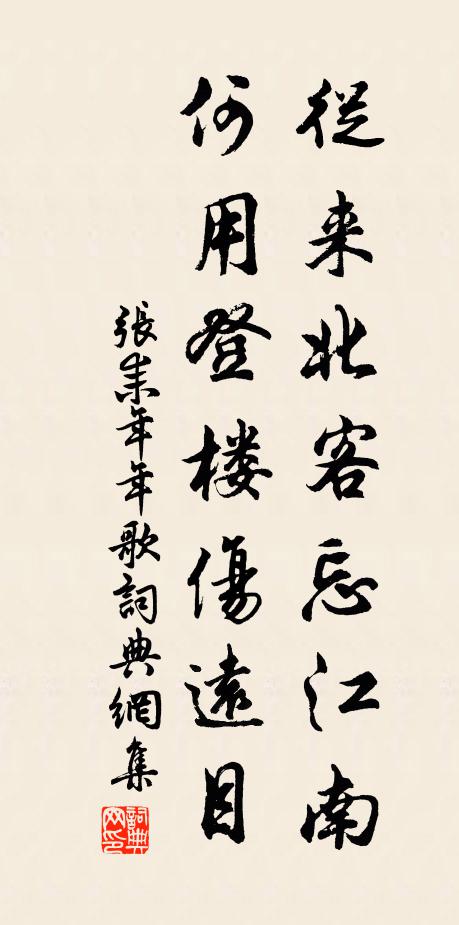 從来北客忘江南
何用登楼傷遠目
張耒年年歌詞典網集
詞典网印